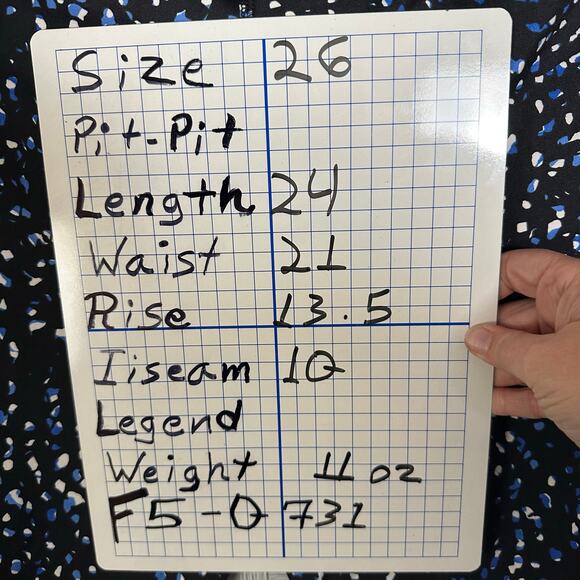 Size 26
Pit-Pit
Length 24
Waist 21
Rise 13.5
Iiseam 10
Legend
Weight 11 oz
F5-0731